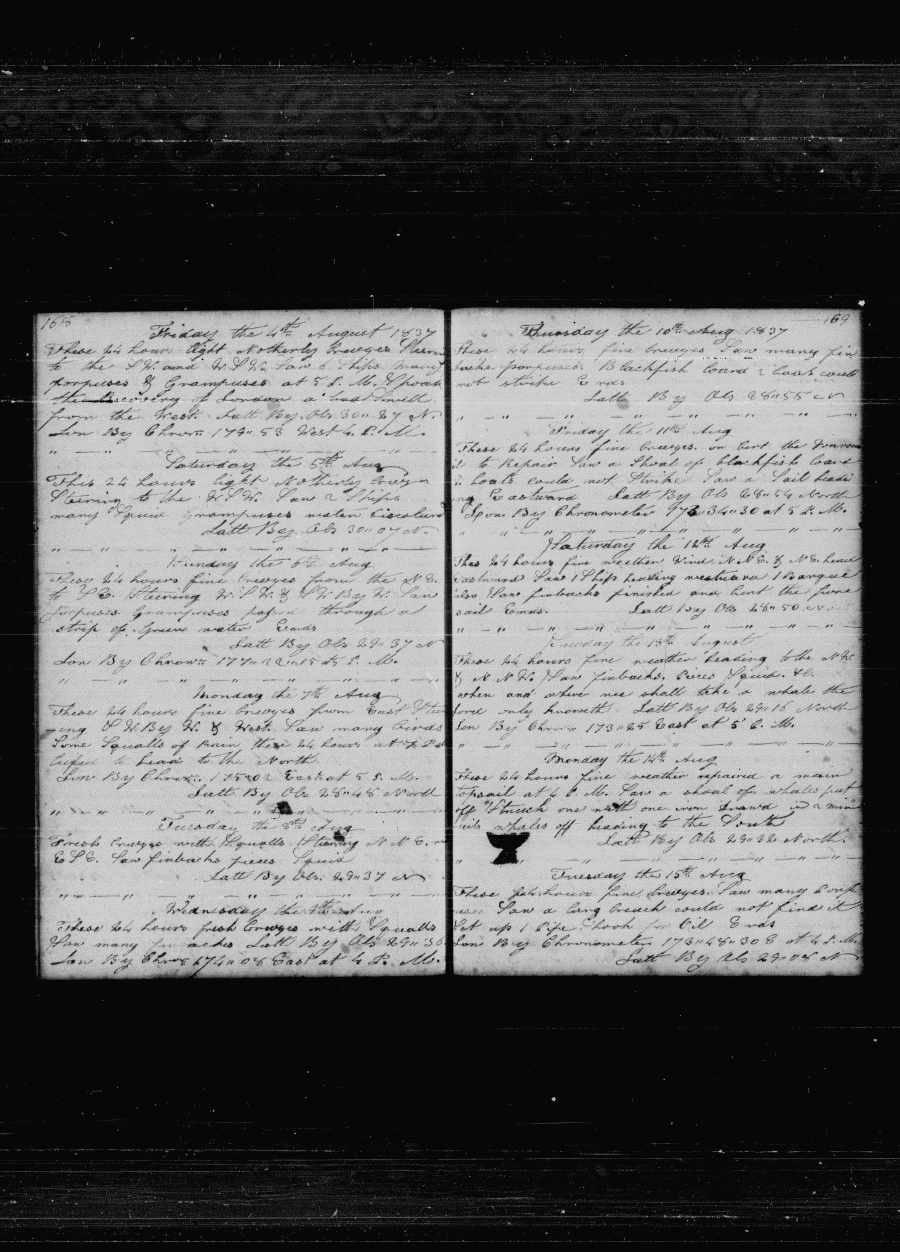 168
Friday the 4th August 1837
These 24 hours light Northerly breeyes Steering
to the S W and W S W. Saw 6 Ships many
porpuses & Grampuses at 5 P. M. Spoak
the Discovery of London a bad Swell
from the West Latt By Obs 30 " 27 N.
Lon By Chron. 178 " 53 West 4. P. M.
Saturday the 5th Aug
Thes 24 hours light Northerly breeye
Steiring to the W. S. W. Saw 2 Ships
many Squid Grampuses water Discolured
Latt By Obs 30 " 07 N
Sunday the 6th Aug
These 24 hours fine breeyes from the N E.
to S E. Steiring W. S. W. & S W By W. Saw
porpuses Grampuses pased through a
strip of Green water Ends
Latt By Obs 29 " 37 N
Lon By Chron. 177 " 22 " 15 at 5 P. M.
Monday the 7th Aug
These 24 hours fine breeyes from East Steer
-eng S W. By W. & West. Saw many Birds
Some Squalls of Rain these 24 hours at 7 P M
luffed to head to the North.
Lon By Chron. 175 " 02 East at 5 P. M.
Latt By Obs 28 " 48 North
Tuesday the 8th Aug
Fresh breeyes with Squalls Steering N N E.
E S E. Saw finbacks pieces Squid
Latt By Obs. 29 " 37 N
Wednesday the 9th Aug
These 24 hours fresh breeyes with Squalls
Saw many finbackes Latt By Obs 29 " 30
Lon By Chron 174 " 08 East at 4 P. M.
169
Thursday the 10th Aug 1837
These 24 hours fine breeyes. Saw many fin
backs. porpuses. Blackfish loard 2 boats could
not strike Ends
Latt By Obs 28 " 55 N
Friday the 11th Aug
These 24 hours fine breeyes. un bent the
to Repair Saw a Shoal of blackfish loard
boats could not Strike Saw a Sail headi
ng Eastward Latt By Obs 28 " 54 North
Lon By Chronometer 34 " 30 at 5 P. M.
Saturday the 12th Aug
Thes 24 hours fine weather Wind N N E. & N E. heading
Eastward Saw 1 Ship heading westward 1 Barque
also Saw finbacks finished and bent the fore
sail Ends. Latt By Obs 28 " 50 N
Sunday the 13th August
These 24 hours fine weather heading to the N W.
& N N W. Saw finbacks, Pices Squid &c.
when and where we shall take a whale the
lord only knoweth. Latt By Obs 29 " 16 North
Lon By Chron 173 " 25 East at 5 P. M.
Monday the 14th Aug
These 24 hours fine weather repaired a main
topsail at 4 P. M. Saw a shoal of whales put
off Struck one with one iron Drawd in 2 min
uits whales off heading to the South
Latt By Obs 29 " 32 North.
Tuesday the 15th Aug
These 24 hours fine breeyes. Saw many Porp
uses Saw a long breach could not find it
Set up 1 Pipe Shook for Oil Ends
Lon By Chronometer 173 " 48 " 30 E at 4 P. M.
Latt By Obs 29 " 08 N